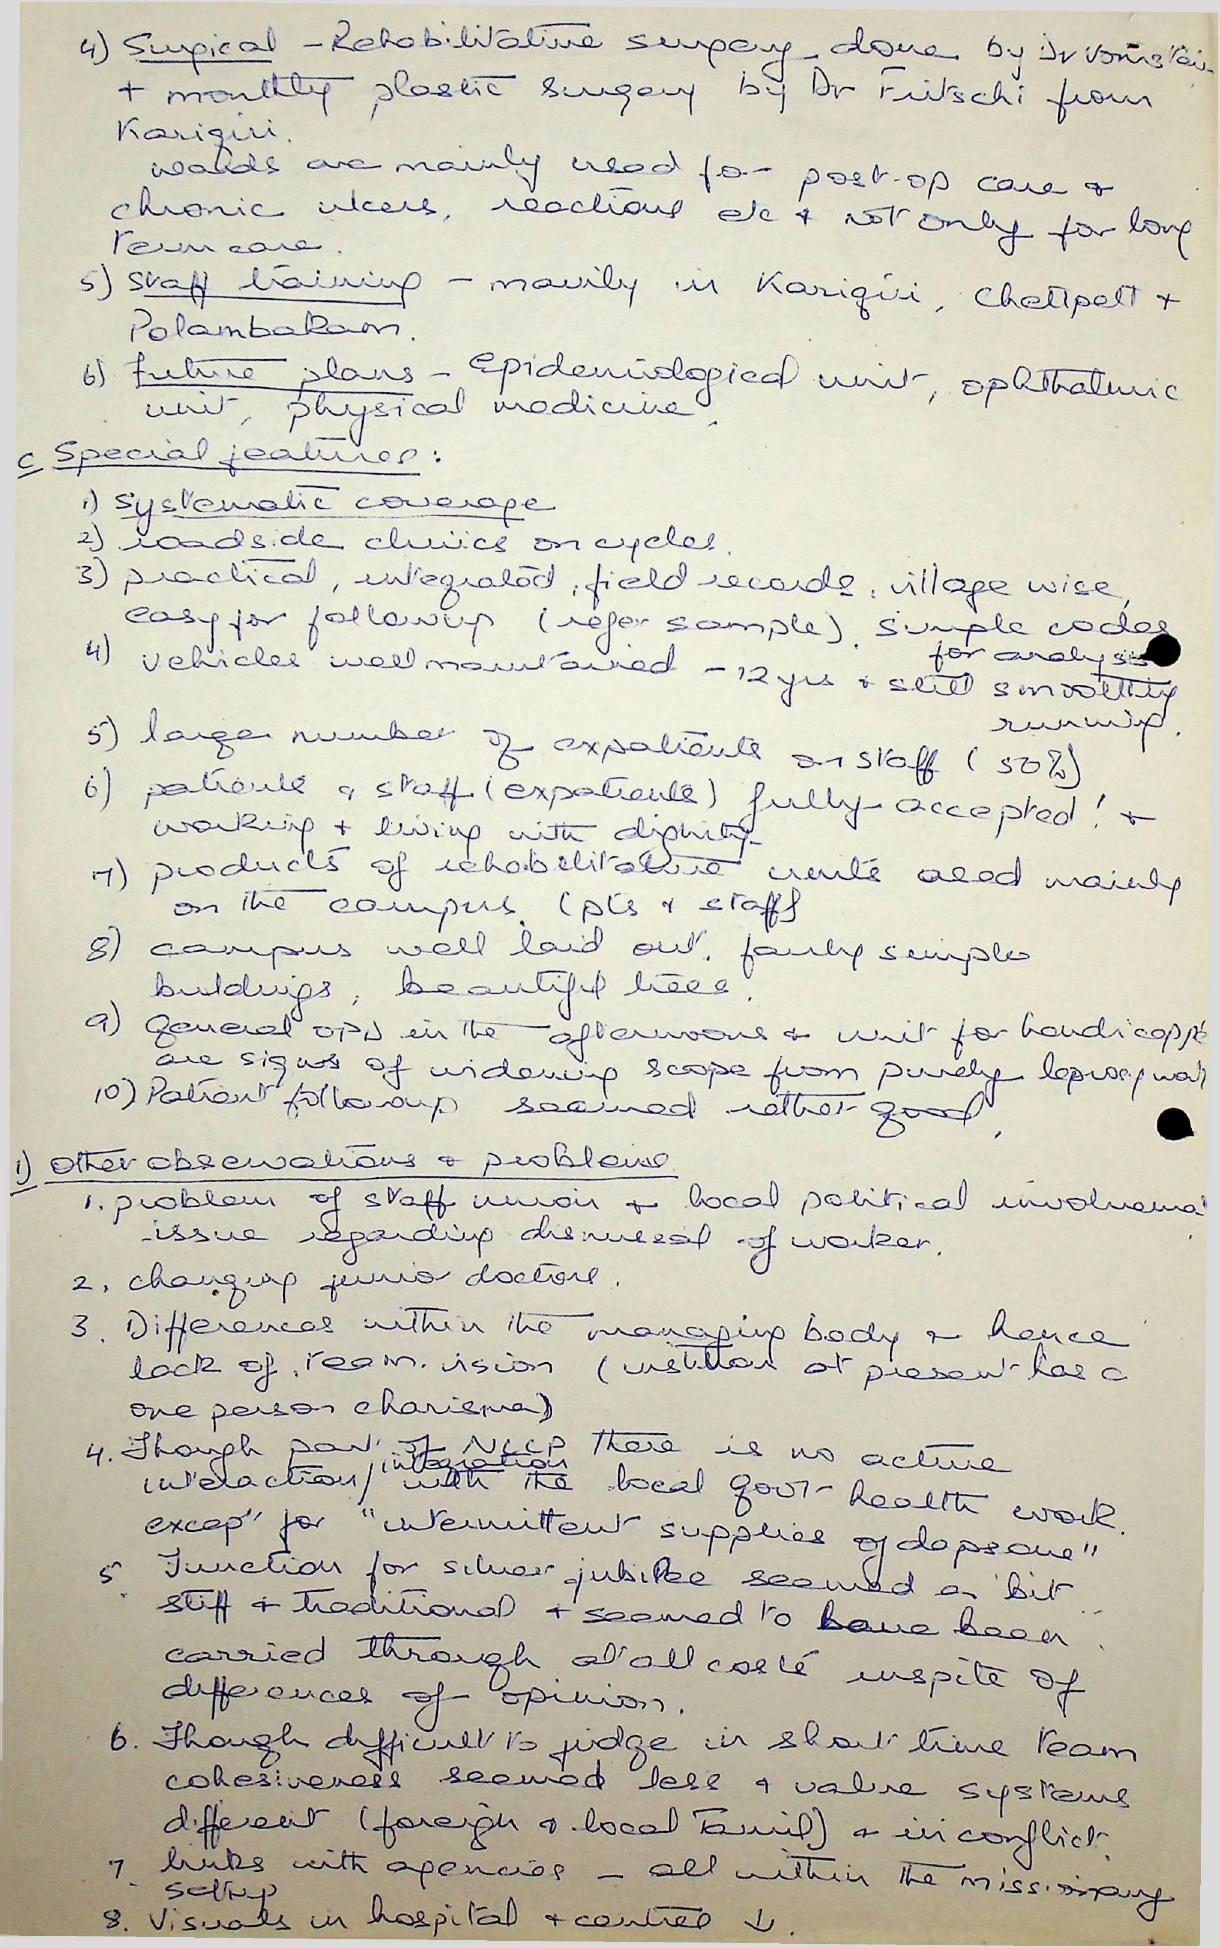 4) Surgical - Rehabilitative surgery done by Dr
+ monthly plastic surgery by Dr Fritschi from
Karigiri.
wards are mainly used for post-op care &
chronic ulcers, reactions etc & not only for long
term care.
5) Staff training - mainly in Karigiri, Chettpatt +
Polambakkam.
6) Future plans - Epidemiological unit, ophthalmic
unit, physical medicine.
C Special features:
1) Systematic coverage
2) roadside clinics on cycles.
3) practical, integrated, field records, village wise,
easy for followup (refer sample). Simple codes
for analysis
4) vehicles well maintained - 12 yrs & still smoothly
running.
5) large number of expatients on staff (50%)
6) patients & staff (expatients) fully accepted! &
working & living with dignity
7) products of rehabilitative units used mainly
on the campus. (pts & staff)
8) campus well laid out, fairly simple
buildings, beautiful trees.
9) General OPD in the afternoons & unit for handicapped
are signs of widening scope from purely leprosy work
10) Patient followup seemed rather good.
i) Other observations & problems
1. problem of staff union & local political involvement
issue regarding dismissal of worker.
2. changing junior doctors.
3. Differences within the managing body & hence
lack of team vision (institution at present has a
one person charisma)
4. Though part of NLCP there is no active
interaction/integration with the local govt health work
except for "intermittent supplies of dapsone"
5. Function for silver jubilee seemed a bit
stiff & traditional & seemed to have been
carried through at all costs inspite of
differences of opinion.
6. Though difficult to judge in short time team
cohesiveness seemed less & value systems
different (foreign & local Tamil) & in conflict.
7. links with agencies - all within the missionary
setup
8. Visuals in hospital & centres ↓.